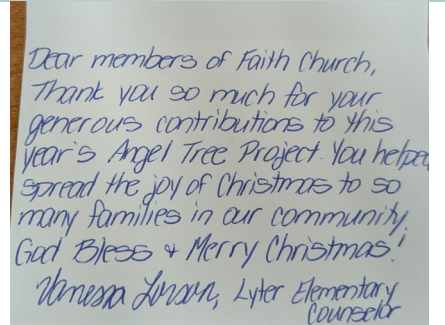 Dear members of Faith Church,
Thank you so much for your
generous contributions to this
year's Angel Tree Project. You helped
spread the joy of Christmas to so
many families in our community.
God Bless & Merry Christmas!
Vanessa Lyter Elementary
Counselor